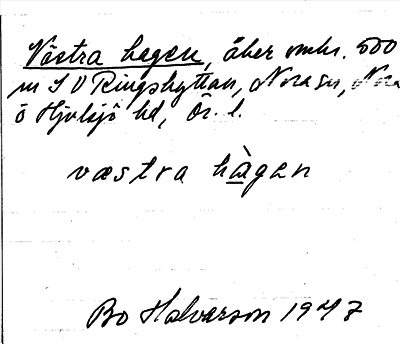 Västra hagen, åker omkr. 500
m S V Ringshyttan, Nora sn, Nora
o Hjulsjö hd, Ör. l.
væstra hàgen
Bo Halvarson 1947